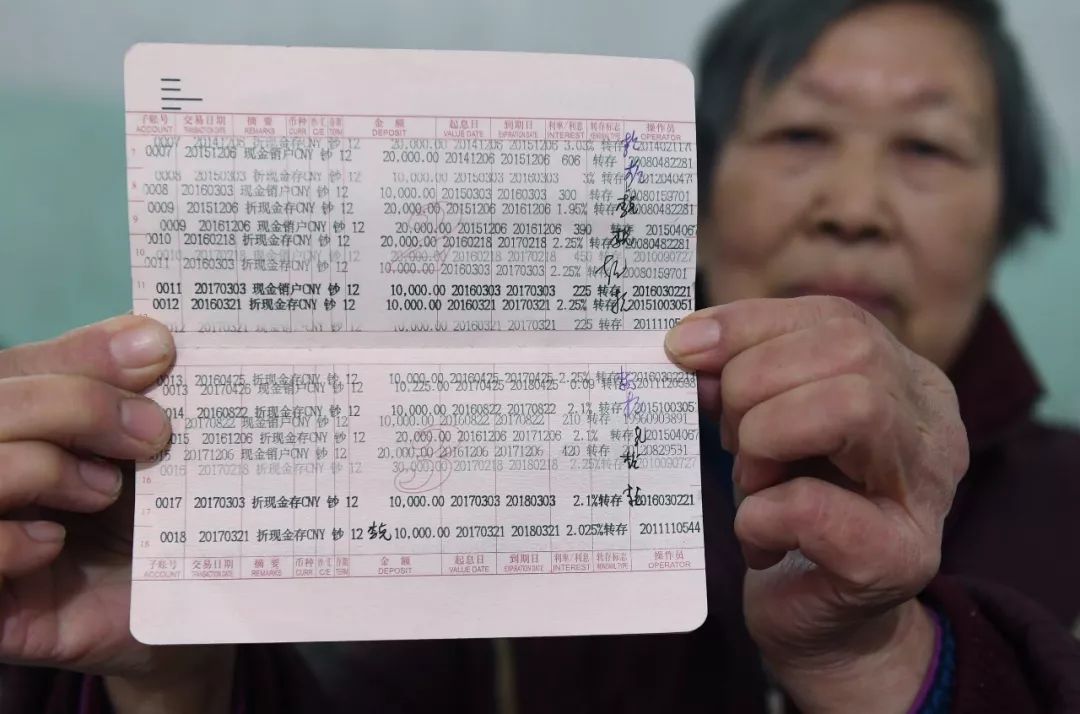 子账号 交易日期 摘要 币种 钞汇 存期 金额 起息日 到期日 利率/利息 转存标志 操作员
ACCOUNT TRANSACTION DATE REMARKS CURR. C/E TERM DEPOSIT VALUE DATE EXPIRATION DATE INTEREST RENEWAL TYPE OPERATOR
0007 折现金存CNY 钞 12 20,000.00 20141206 20151206 3.03% 转存
7 0007 20151206 现金销户CNY 钞 12 20,000.00 20141206 20151206 606 转存 20080482281
0008 20150303 折现金存CNY 钞 12 10,000.00 20150303 20160303 3% 转存
8 0008 20160303 现金销户CNY 钞 12 10,000.00 20150303 20160303 300 转存 20080159701
0009 20151206 折现金存CNY 钞 12 20,000.00 20151206 20161206 1.95% 转存 20080482281
9 0009 20161206 现金销户CNY 钞 12 20,000.00 20151206 20161206 390 转存 201504067
0010 20160218 折现金存CNY 钞 12 20,000.00 20160218 20170218 2.25% 转存 20080482281
10 0010 20170218 现金销户CNY 钞 12 20,000.00 20160218 20170218 450 转存 2010090727
0011 20160303 折现金存CNY 钞 12 10,000.00 20160303 20170303 2.25% 转存 20080159701
11 0011 20170303 现金销户CNY 钞 12 10,000.00 20160303 20170303 225 转存 2016030221
0012 20160321 折现金存CNY 钞 12 10,000.00 20160321 20170321 2.25% 转存 20151003051
20170321 现金销户CNY 钞 12 10,000.00 20160321 20170321 225 转存
0013 20160425 折现金存CNY 钞 12 10,000.00 20160425 20170425 2.25% 转存
0013 20170426 现金销户CNY 钞 12 10,225.00 20170425 20180425 0.09 转存
014 20160822 折现金存CNY 钞 12 10,000.00 20160822 20170822 2.1% 转存 2015100305
20170822 现金销户CNY 钞 12 10,000.00 20160822 20170822 210 转存 19960903891
015 20161206 折现金存CNY 钞 12 20,000.00 20161206 20171206 2.1% 转存 201504067
15 20171206 现金销户CNY 钞 12 20,000.00 20161206 20171206 420 转存 20829531
0016 20170218 折现金存CNY 钞 12 30,000.00 20170218 20180218 2.25% 转存 2010090727
16
0017 20170303 折现金存CNY 钞 12 10,000.00 20170303 20180303 2.1% 转存 2016030221
17
0018 20170321 折现金存CNY 钞 12 10,000.00 20170321 20180321 2.025% 转存 2011110544
18
子账号 交易日期 摘要 币种 钞汇 存期 金额 起息日 到期日 利率/利息 转存标志 操作员
ACCOUNT TRANSACTION DATE REMARKS CURR. C/E TERM DEPOSIT VALUE DATE EXPIRATION DATE INTEREST RENEWAL TYPE OPERATOR